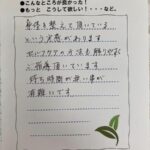 ●こんなところが良かった！
●もっと こうして欲しい！・・・など。
身体を整えて頂いている
という実感があります
セルフケアの方法も解りやすく
ご指導頂いています
待ち時間が無い事が
有難いです